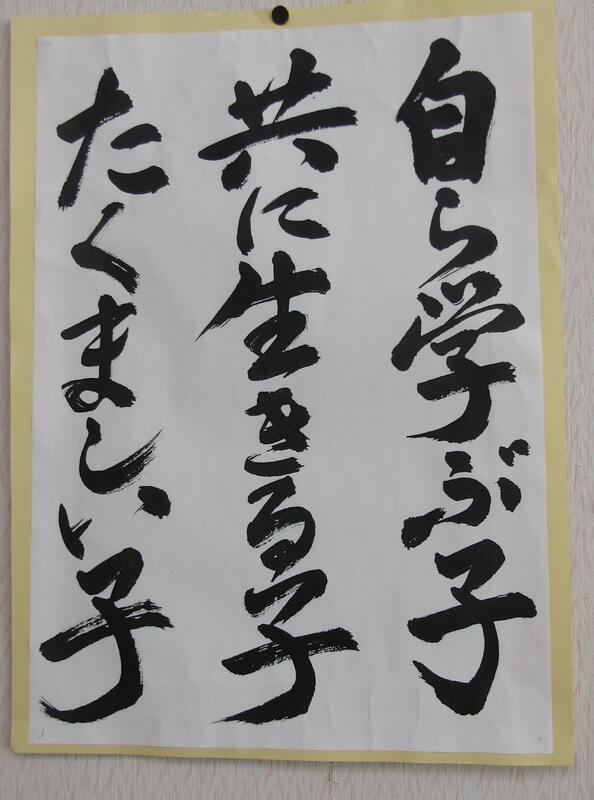 自ら学ぶ子
共に生きる子
たくましい子